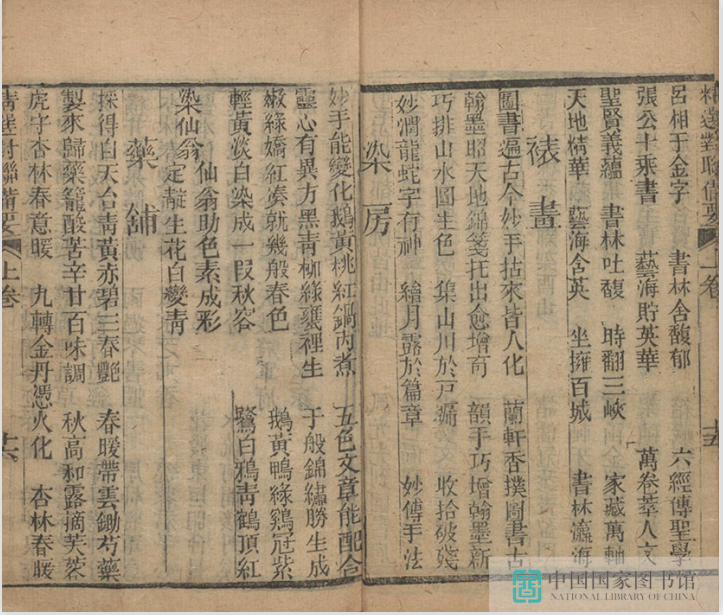 精選對聯備要 上卷 十五
呂相于金字 書林含馥郁 六經傳聖學
張公十乘書 藝海貯英華 萬卷萃人文
聖賢義蘊 書林吐馥 時翻三峽 家藏萬軸
天地精華 藝海含英 坐擁百城 書林瀛海
裱畫
圖書遍古今妙手拈來皆人化 蘭軒香撲圖書古
翰墨昭天地錦箋托出愈增奇 韻手巧增翰墨新
巧排山水圖生色 集山川於戶牖 收拾破殘
妙潤龍蛇字有神 繪月露於篇章 妙傳手法
染房
妙手能變化鵝黃桃紅鍋內煮 五色文章能配合
靈心有異方黑青柳綠甕裡生 千般錦繡勝生成
嫩綠嬌紅湊就幾般春色 鵝黃鴨綠鷄冠紫
輕黃淡白染成一段秋容 鷺白鴉青鶴頂紅
仙翁助色素成彩
染仙翁春定靛生花白變青
藥舖
採得自天台青黃赤碧三春艷 春暖帶雲鋤芍藥
製來歸藥籠酸苦辛甘百味調 秋高和露摘芙蓉
虎守杏林春意暖 九轉金丹憑火化 杏林春暖
精選對聯備要 上卷 十六
中国国家图书馆
NATIONAL LIBRARY OF CHINA